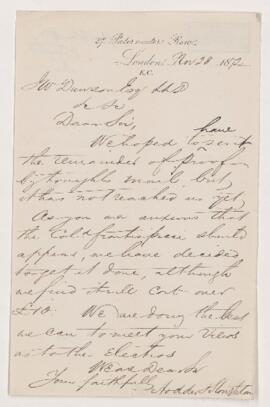 27 Paternoster Row,
London, Nov 28 1872
E.C.
JW Dawson Esq LLD
&c &c
Dear Sir,
have
We hoped to send
the remainder of proof on
by tonights mail, but
it has not reached us yet,
As you are anxious that
the Cold frontispiece should
appear, we have decided
to get it done, although
we find it will cost over
£10. We are doing the best
we can to meet your views
as to the electros
We are Dear Sir
Yours faithfully
Hodder & Stoughton